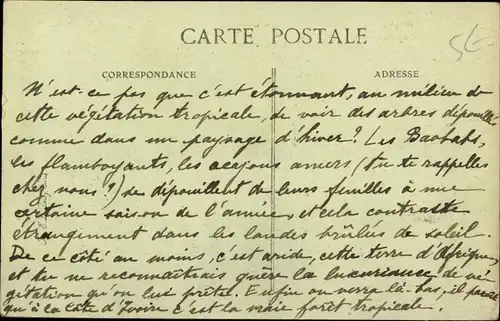 CARTE POSTALE
5E
CORRESPONDANCE
ADRESSE
N'est-ce pas que c'est étonnant, au milieu de
cette végétation tropicale, de voir des arbres dépouillés
comme dans un paysage d'hiver? Les Baobabs,
les flamboyants, les acajous amers (tu te rappelles
chez nous?) se dépouillent de leurs feuilles à une
certaine saison de l'année, et cela contraste
étrangement dans les landes brûlées de soleil.
De ce côté au moins, c'est aride, cette terre d'Afrique,
et tu ne reconnaîtrais guère la luxuriance de vé-
gétation qu'on lui prête. Enfin on verra là-bas, il paraît
qu'à la Côte d'Ivoire c'est la vraie forêt tropicale.